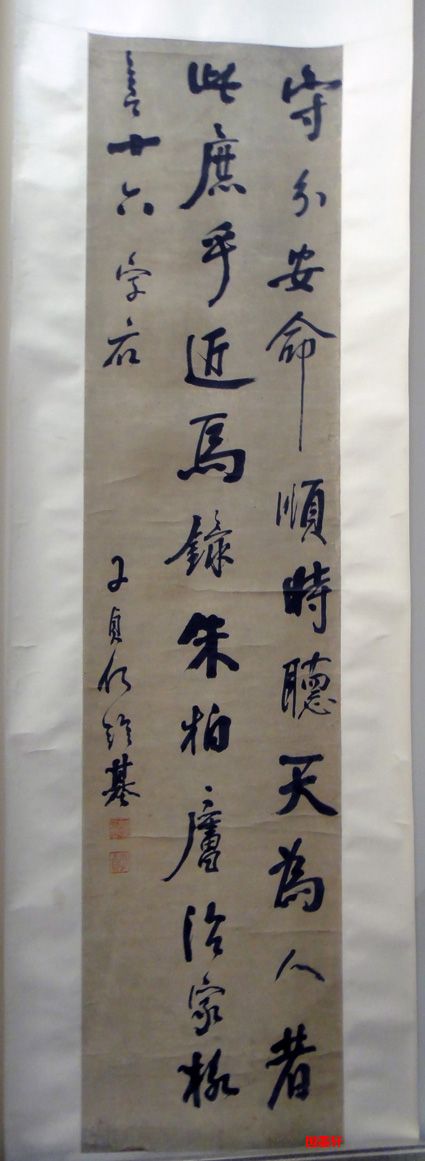 守分安命順時聽天為人若
此庶乎近焉錄朱柏廬治家格
言十六字
子貞何紹基